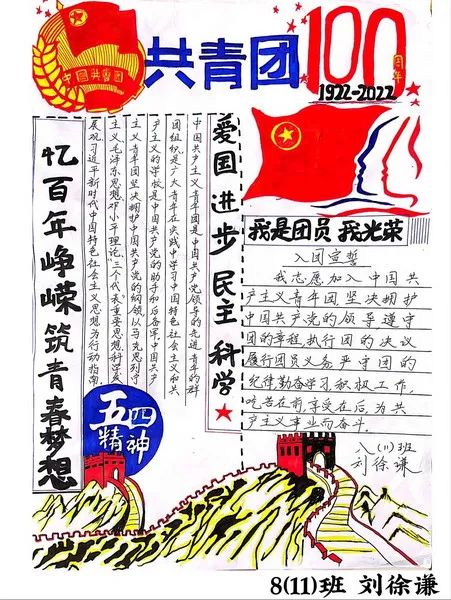 中国共青团
共青团100
周年
1922-2022
忆百年峥嵘筑青春梦想
爱国 进步 民主 科学
中国共产主义青年团是中国共产党领导的先进青年的群
团组织,是广大青年在实践中学习中国特色社会主义和共
产主义的学校,是中国共产党的助手和后备军。中国共产
主义青年团坚决拥护中国共产党的纲领,以马克思列宁
主义、毛泽东思想、邓小平理论、“三个代表”重要思想、科学发
展观、习近平新时代中国特色社会主义思想为行动指南,
五四
精神
我是团员 我光荣
入团宣誓
我志愿加入中国共
产主义青年团坚决拥护
中国共产党的领导遵守
团的章程,执行团的决议
履行团员义务严守团的
纪律,勤奋学习积极工作,
吃苦在前,享受在后,为共
产主义事业而奋斗.
八(11)班
刘徐谦
8(11)班 刘徐谦